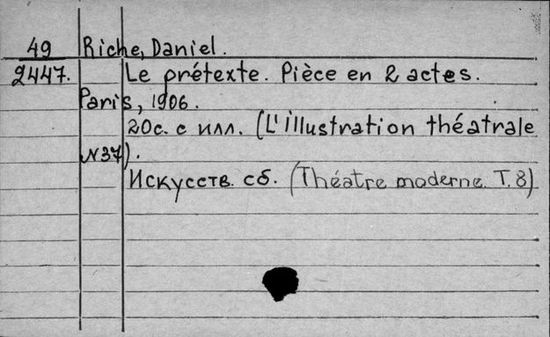 49 Riche, Daniel.
2447. Le prétexte. Pièce en 2 actes.
Paris, 1906.
20с. с илл. (L'illustration théatrale
N37).
Искусств. сб. (Théatre moderne. T. 8)